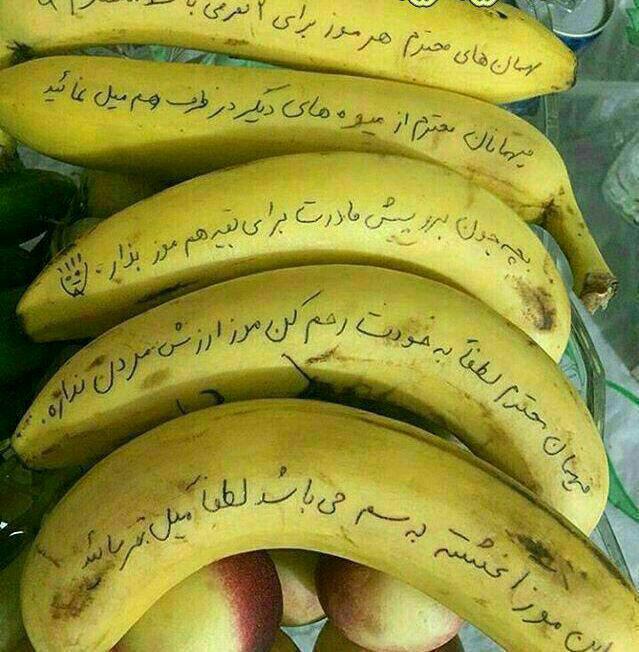 مهمان های محترم هر موز برای ۲ نفر می باشد
میهمانان محترم از میوه های دیگر در ظرف هم میل نمائید
بچه جون برو پیش مادرت برای بقیه هم موز بذار.
میهمان محترم لطفاً به خودت رحم کن موز ارزش مردن نداره.
این موز آغشته به سم می باشد لطفاً میل نفرمائید